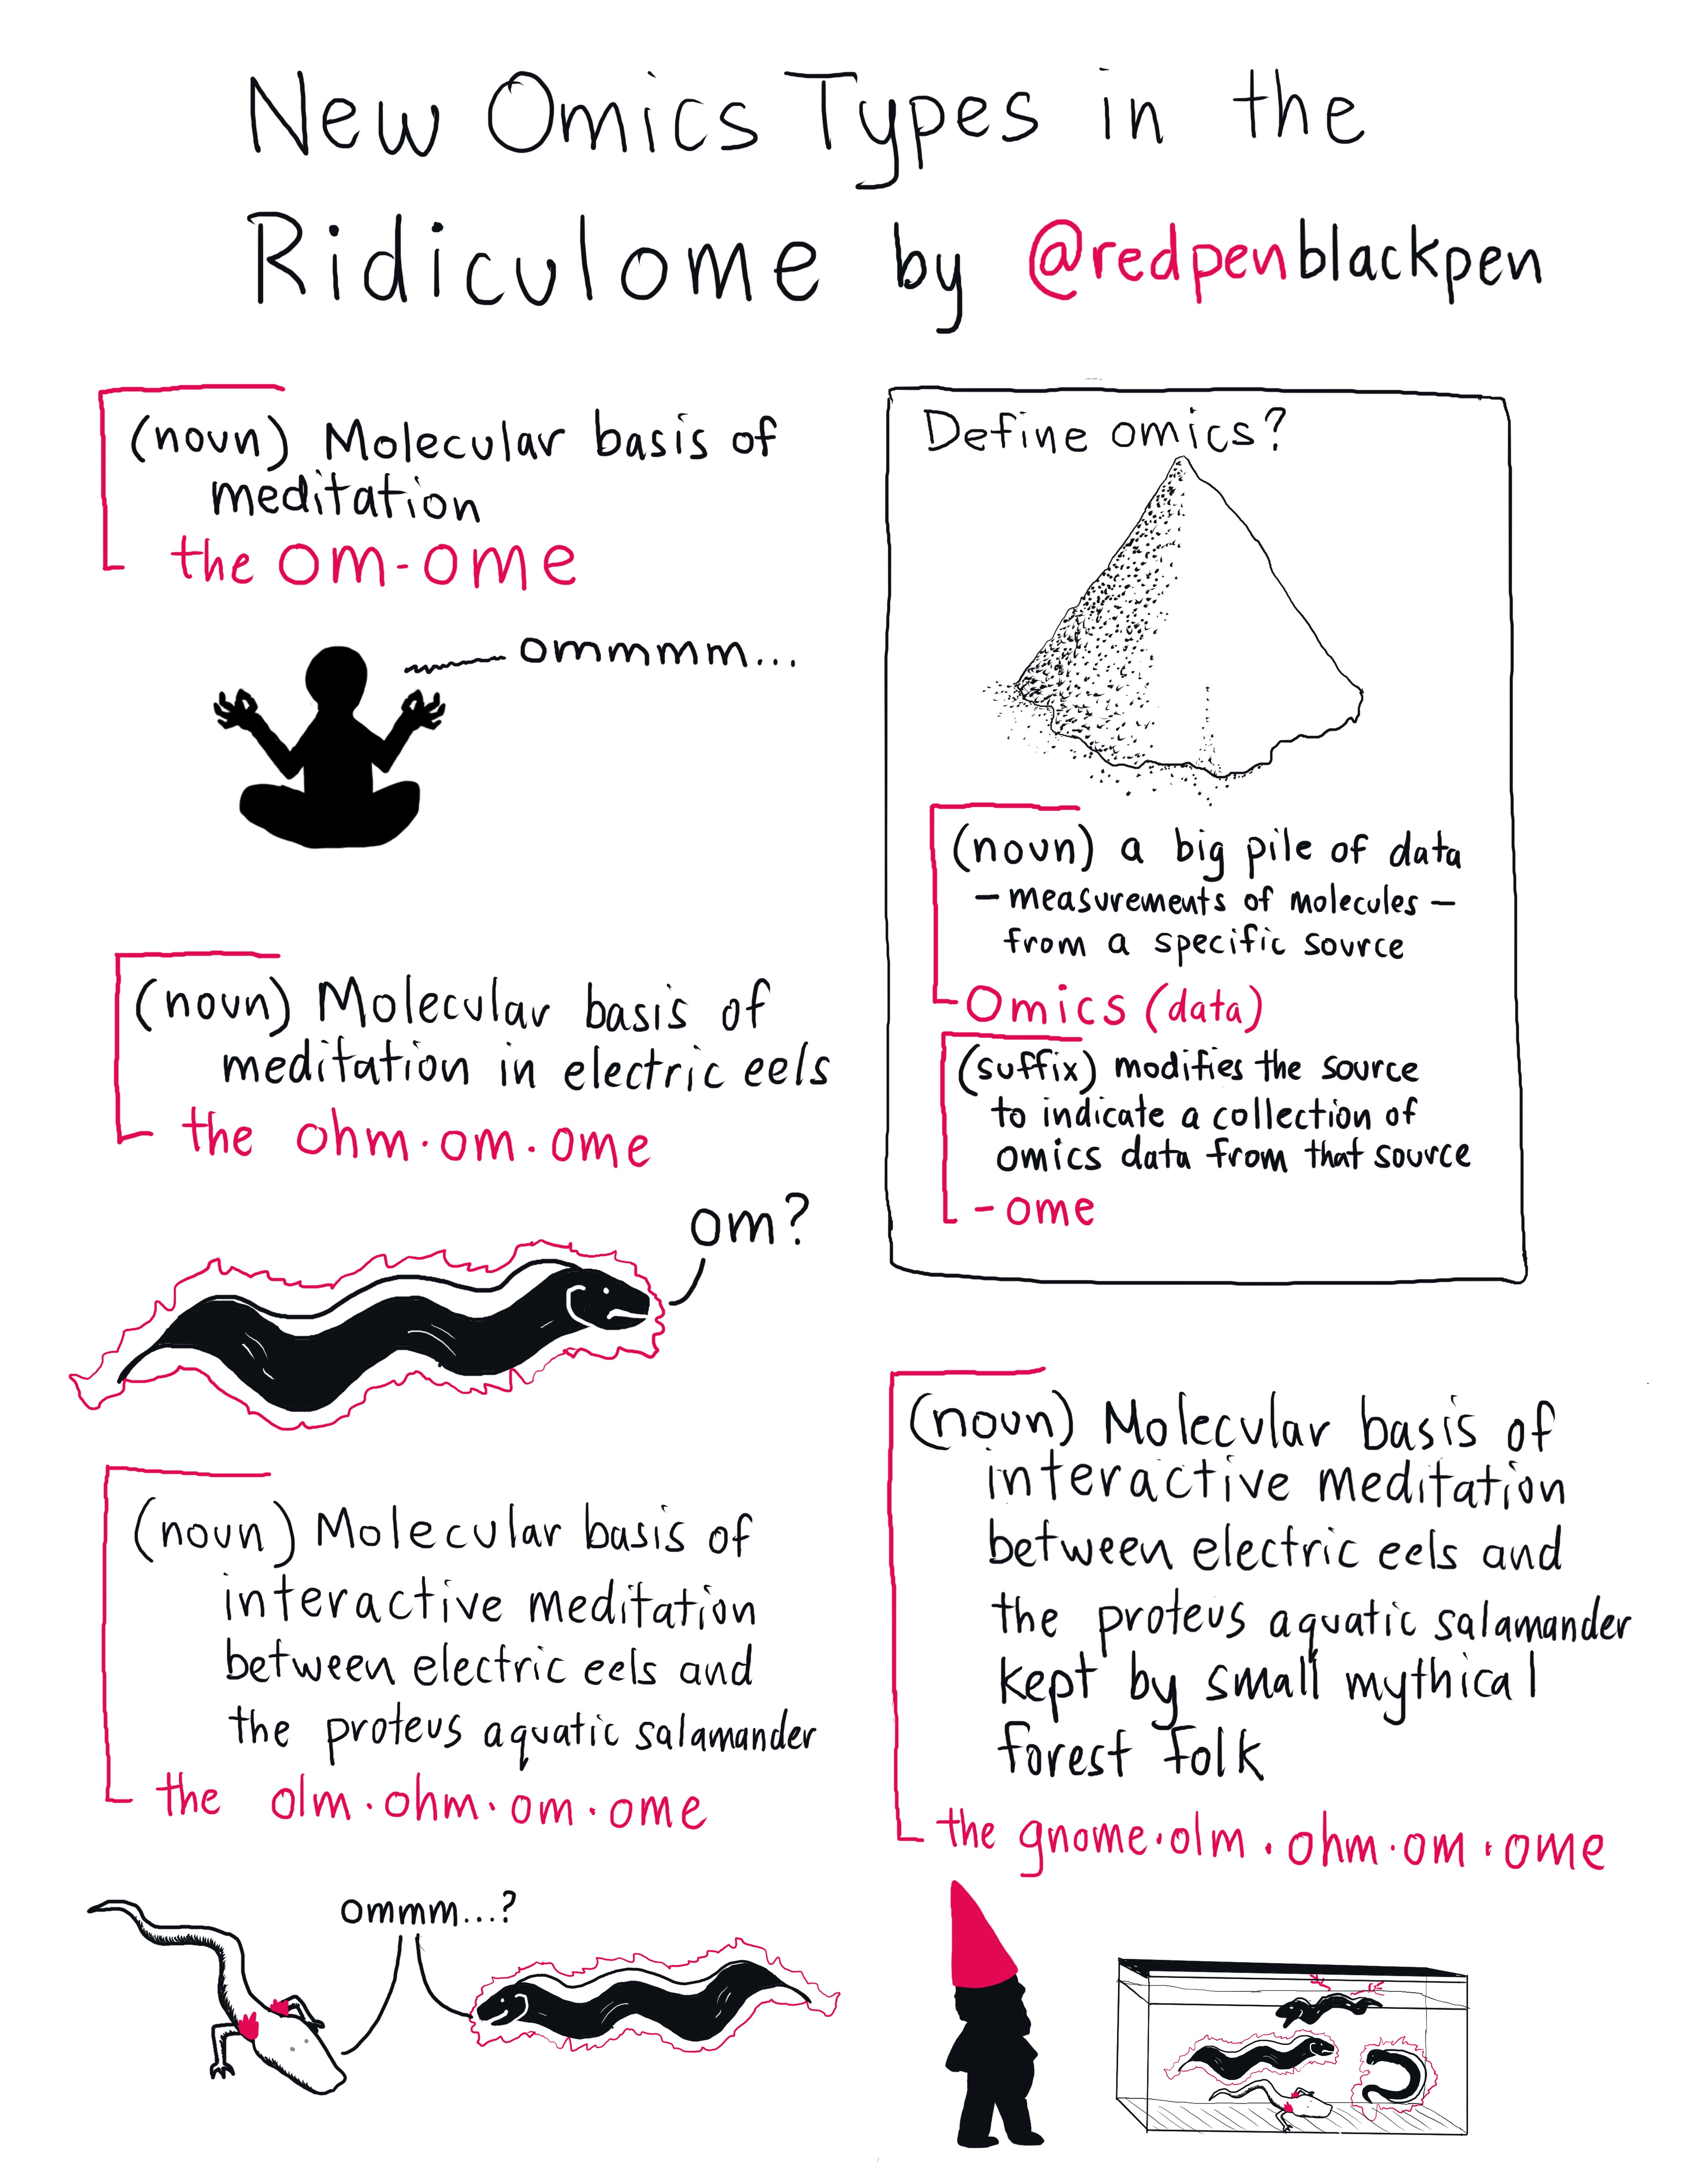 New Omics Types in the
Ridiculome by @redpenblackpen
(noun) Molecular basis of
meditation
the om-ome
ommmm...
(noun) Molecular basis of
meditation in electric eels
the ohm·om·ome
om?
(noun) Molecular basis of
interactive meditation
between electric eels and
the proteus aquatic salamander
the olm·ohm·om·ome
ommm...?
Define omics?
(noun) a big pile of data
- measurements of molecules -
from a specific source
Omics (data)
(suffix) modifies the source
to indicate a collection of
omics data from that source
-ome
(noun) Molecular basis of
interactive meditation
between electric eels and
the proteus aquatic salamander
kept by small mythical
forest folk
the gnome·olm·ohm·om·ome